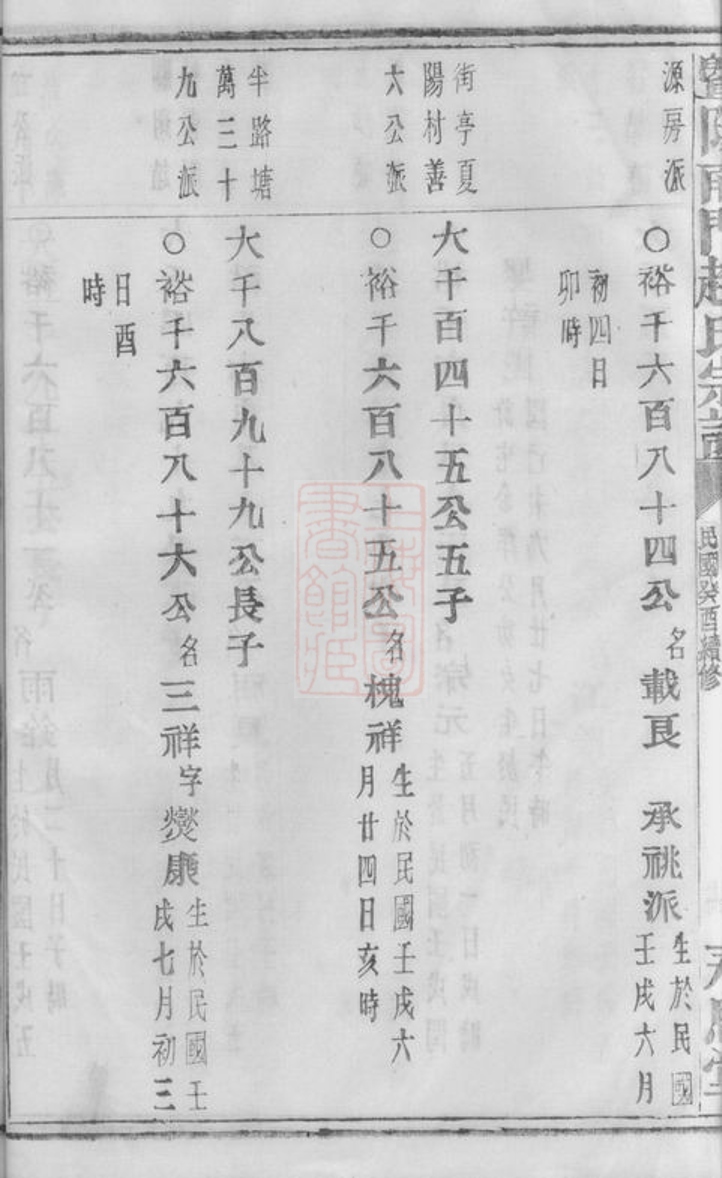 暨陽西門趙氏宗譜
民國癸酉續修
源房派
○裕千六百八十四公名載良 承祧派生於民國
壬戌六月
初四日
卯時
街亭夏
陽村善
六公派
大千百四十五公五子
○裕千六百八十五公名槐祥生於民國壬戌六
月廿四日亥時
半路塘
萬三十
九公派
大千八百九十九公長子
○裕千六百八十六公名三祥字爕康生於民國壬
戌七月初三
日酉
時
上海圖
書館藏